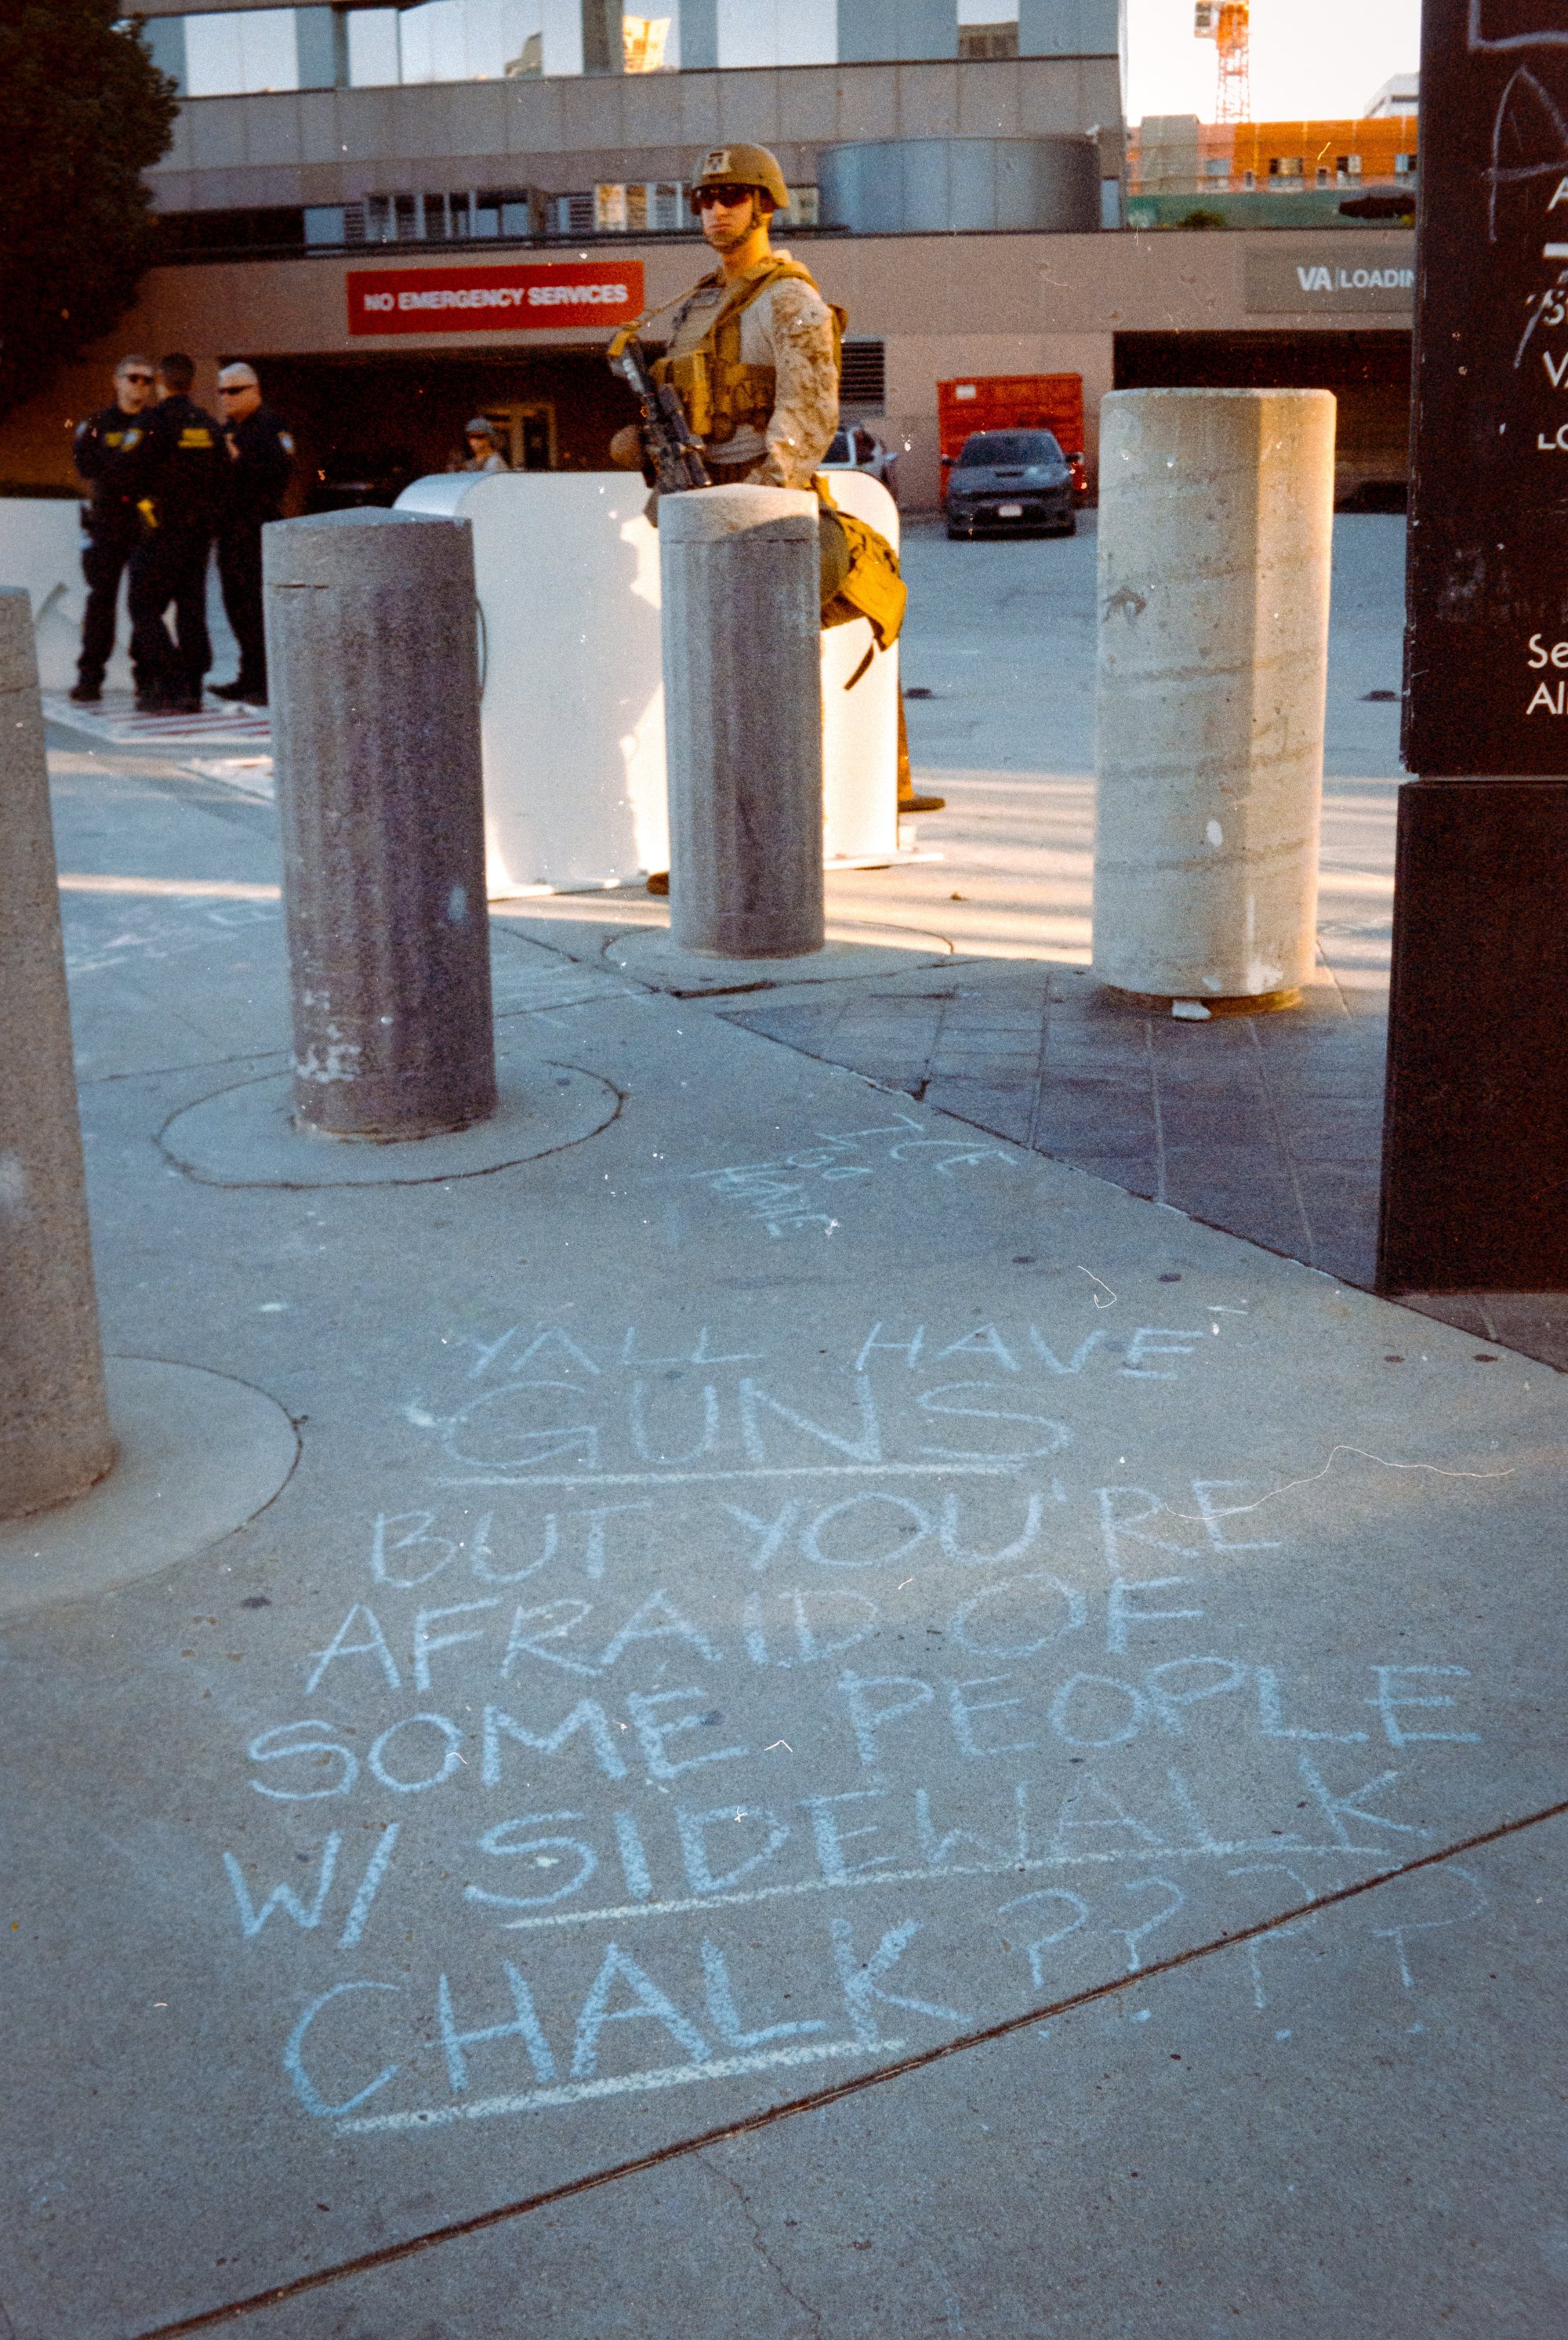 NO EMERGENCY SERVICES
VA LOADIN
Se
Al
ICE
YALL HAVE
GUNS
BUT YOU'RE
AFRAID OF
SOME PEOPLE
W/ SIDEWALK
CHALK????